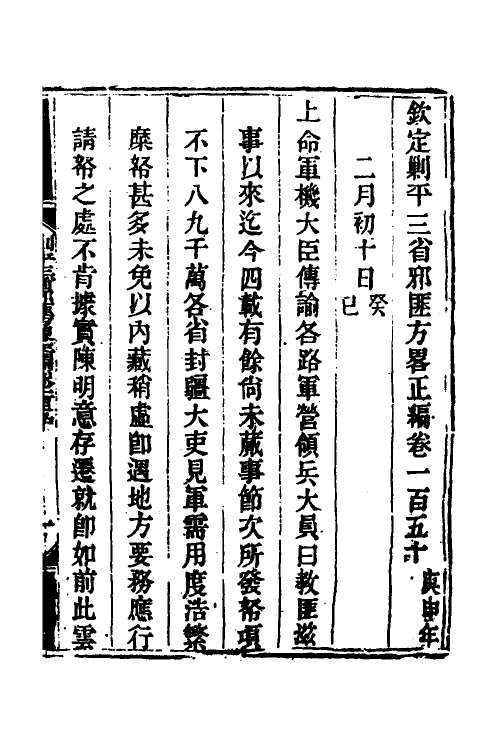 欽定剿平三省邪匪方畧正編卷一百五十 庚申年
二月初十日癸巳
上命軍機大臣傳諭各路軍營領兵大員曰教匪滋
事以來迄今四載有餘尙未蕆事節次所發帑項
不下八九千萬各省封疆大吏見軍需用度浩繁
糜帑甚多未免以內藏稍虛卽遇地方要務應行
請帑之處不肯據實陳明意存遷就卽如前此雲